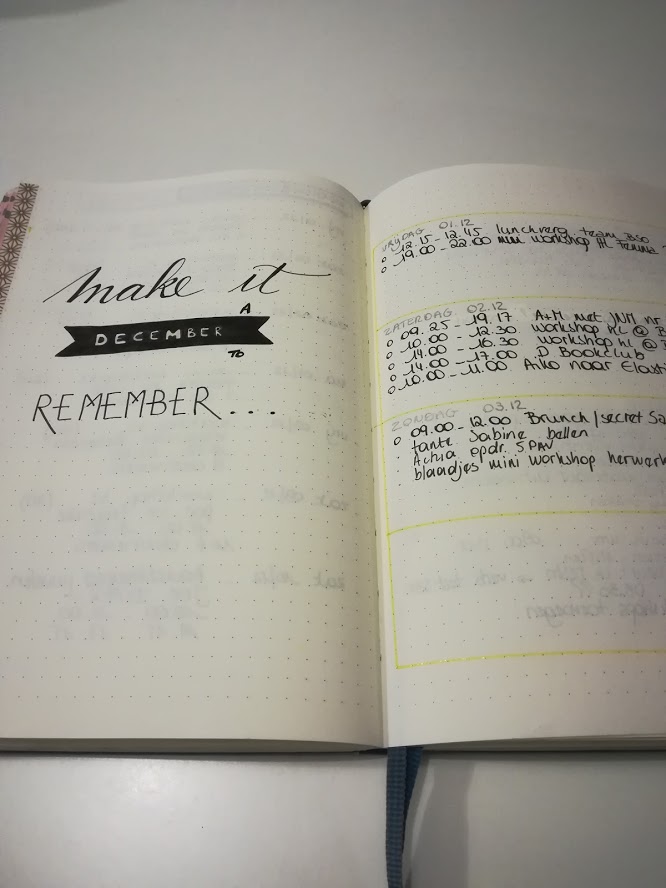 make it
A
DECEMBER
TO
REMEMBER...
VRIJDAG 01.12
12.15 - 12.45 lunchverg. team BSO
19.00 - 22.00 mini workshop HL
ZATERDAG 02.12
09.25 - 19.17 A+M met JNM
10.00 - 12.30 workshop HL @
14.00 - 16.30 workshop HL @
14.00 - 17.00 D Bookclub
10.00 - 11.00 Anko naar
ZONDAG 03.12
09.00 - 12.00 Brunch / secret Sa
tante Sabine bellen
opdr. SPAV
blaadjes mini workshop herwerk